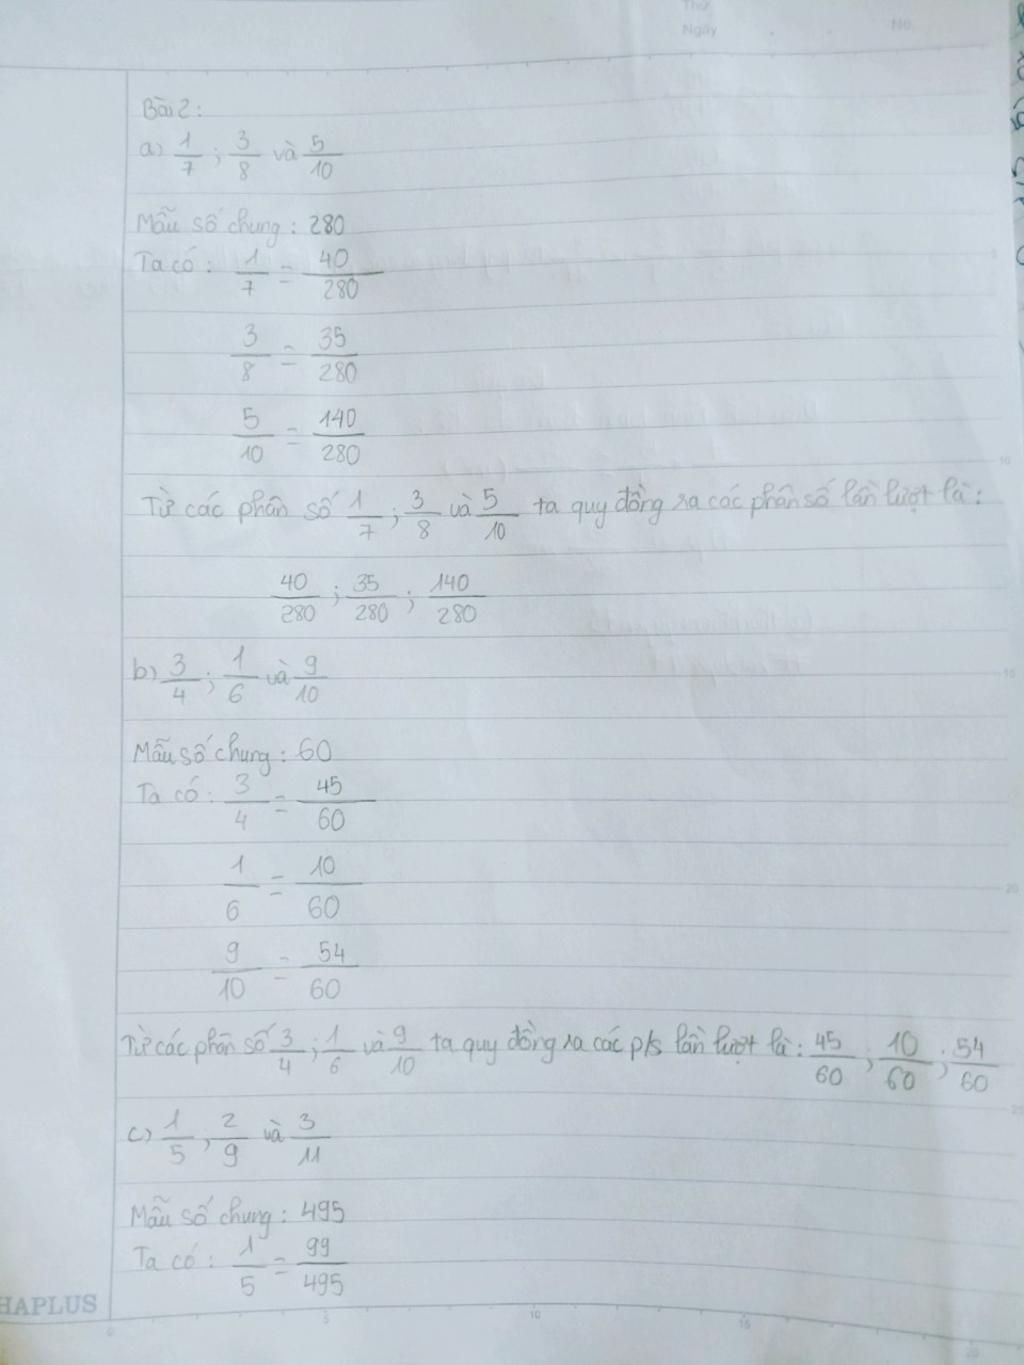 Thứ
Ngày
No.
Bài 2:
a) 1/7 ; 3/8 và 5/10
Mẫu số chung : 280
Ta có : 1/7 = 40/280
3/8 = 35/280
5/10 = 140/280
Từ các phân số 1/7 ; 3/8 và 5/10 ta quy đồng ra các phân số lần lượt là :
40/280 ; 35/280 ; 140/280
b) 3/4 ; 1/6 và 9/10
Mẫu số chung : 60
Ta có : 3/4 = 45/60
1/6 = 10/60
9/10 = 54/60
Từ các phân số 3/4 ; 1/6 và 9/10 ta quy đồng ra các p/s lần lượt là : 45/60 ; 10/60 ; 54/60
c) 1/5 ; 2/9 và 3/11
Mẫu số chung : 495
Ta có : 1/5 = 99/495
HAPLUS
0 5 10 15 20